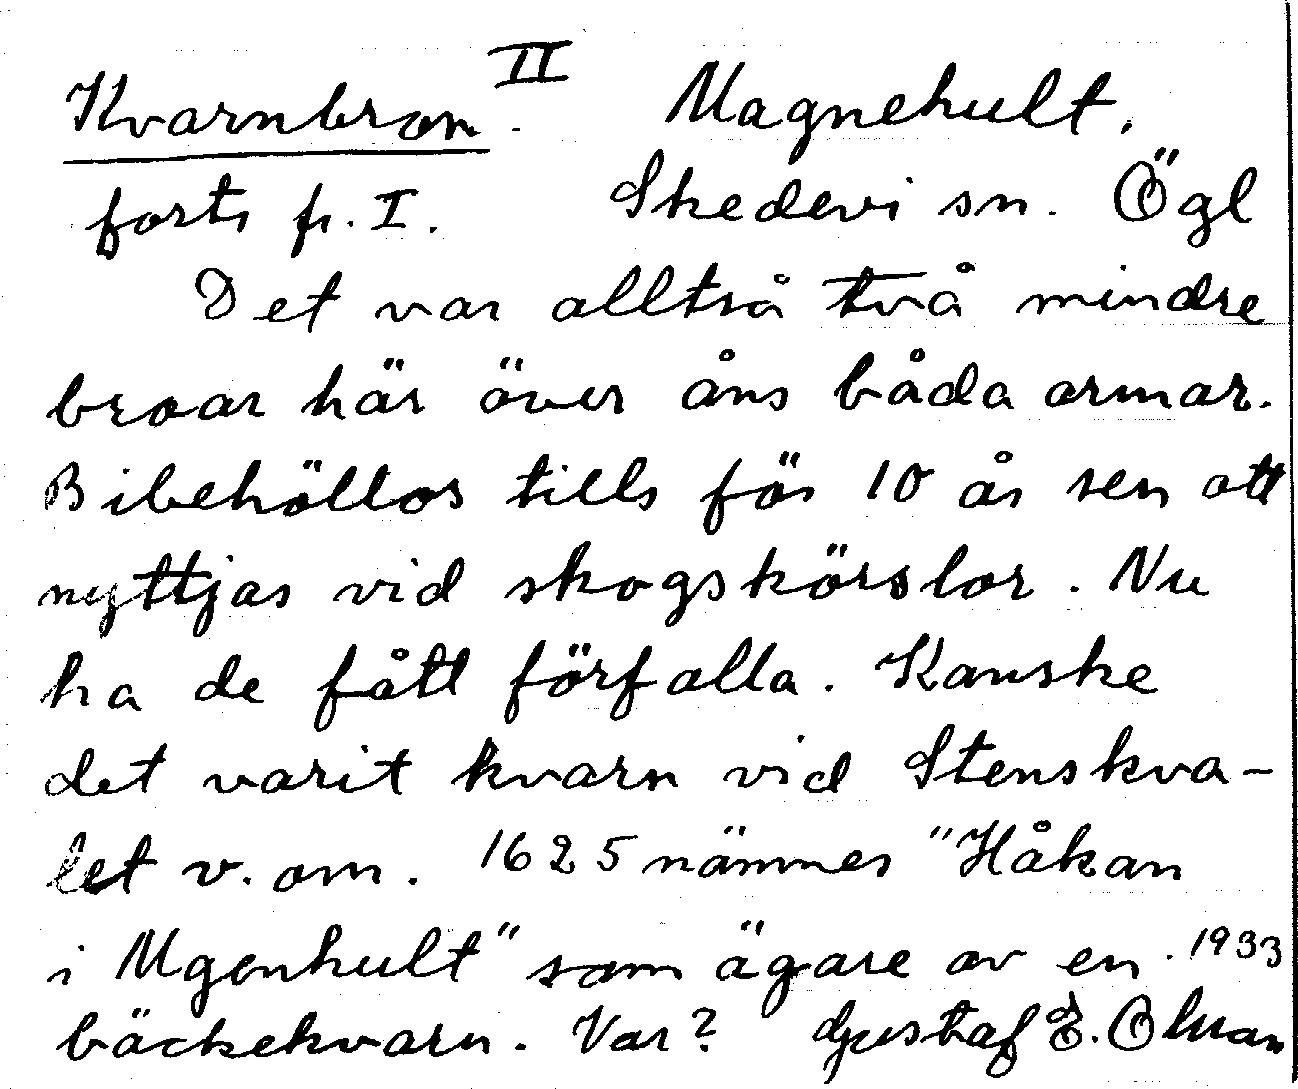 II
Kvarnbron. Magnehult.
forts fr. I. Skedevi sn. Ögl
Det var alltså två mindre
broar här över åns båda armar.
Bibehöllos tills för 10 år sen att
nyttjas vid skogskörslor. Nu
ha de fått förfalla. Kanske
det varit kvarn vid Stenskva-
let v. om. 1625 nämnes "Håkan
i Mgenhult" som ägare av en 1933
bäckekvarn. Var? Gustaf E.